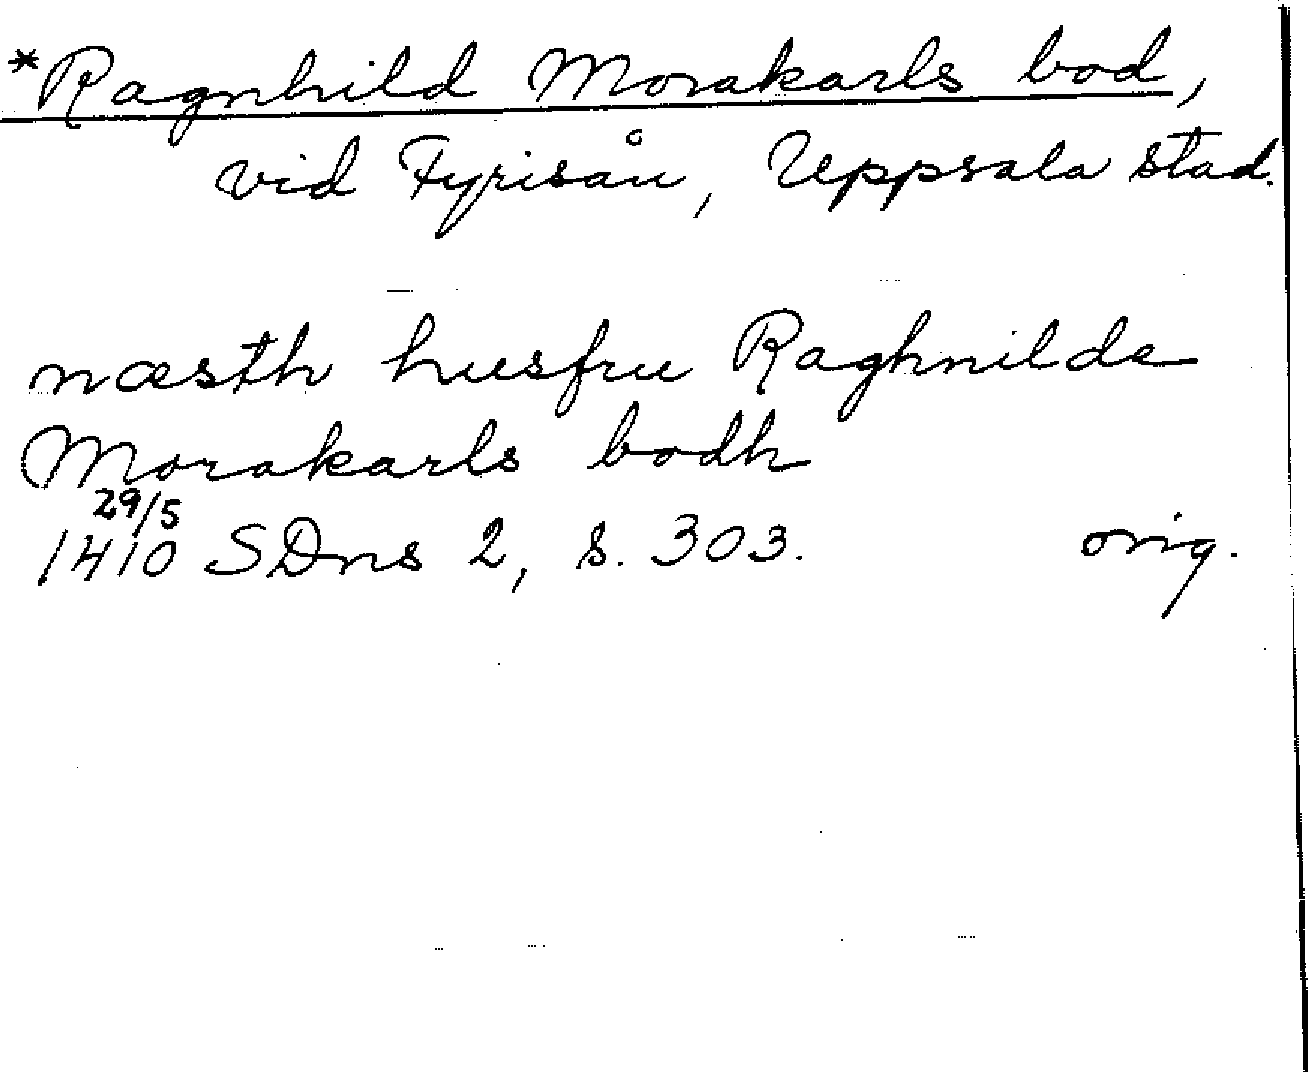 *Ragnhild Morakarls bod,
vid Fyrisån, Uppsala stad.
næsth husfru Raghnilde
Morakarls bodh
29/5
1410 SDns 2, s. 303. orig.